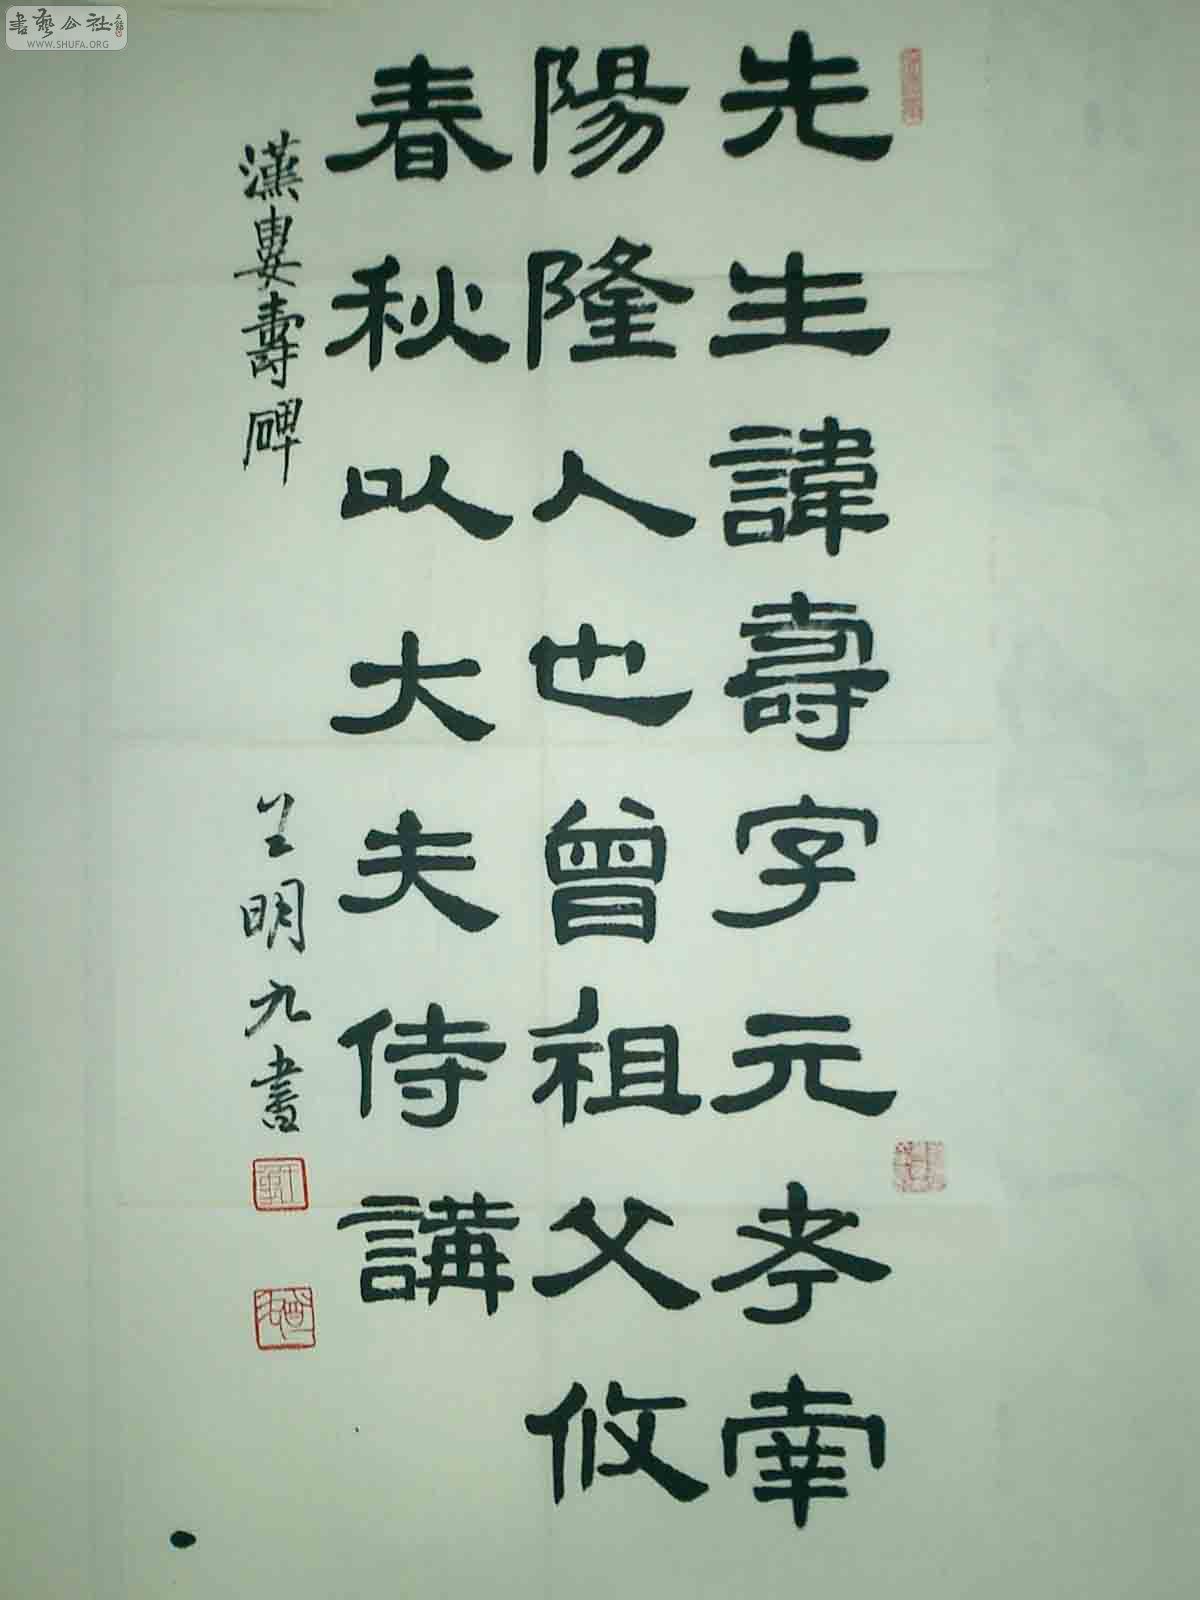 先生諱壽字元考南
陽隆人也曾祖父攸
春秋以大夫侍講
漢婁壽碑
王明九書
書藝公社
WWW.SHUFA.ORG